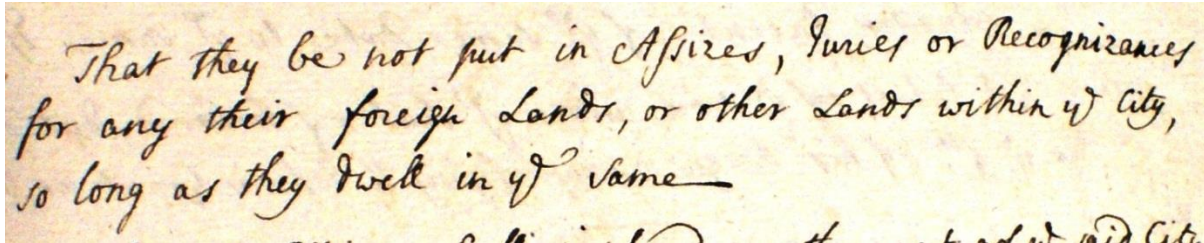 That they be not put in Assizes, Juries or Recognizances
for any their foreign Lands, or other Lands within yᵉ City,
so long as they dwell in yᵉ same
yᵉ said City